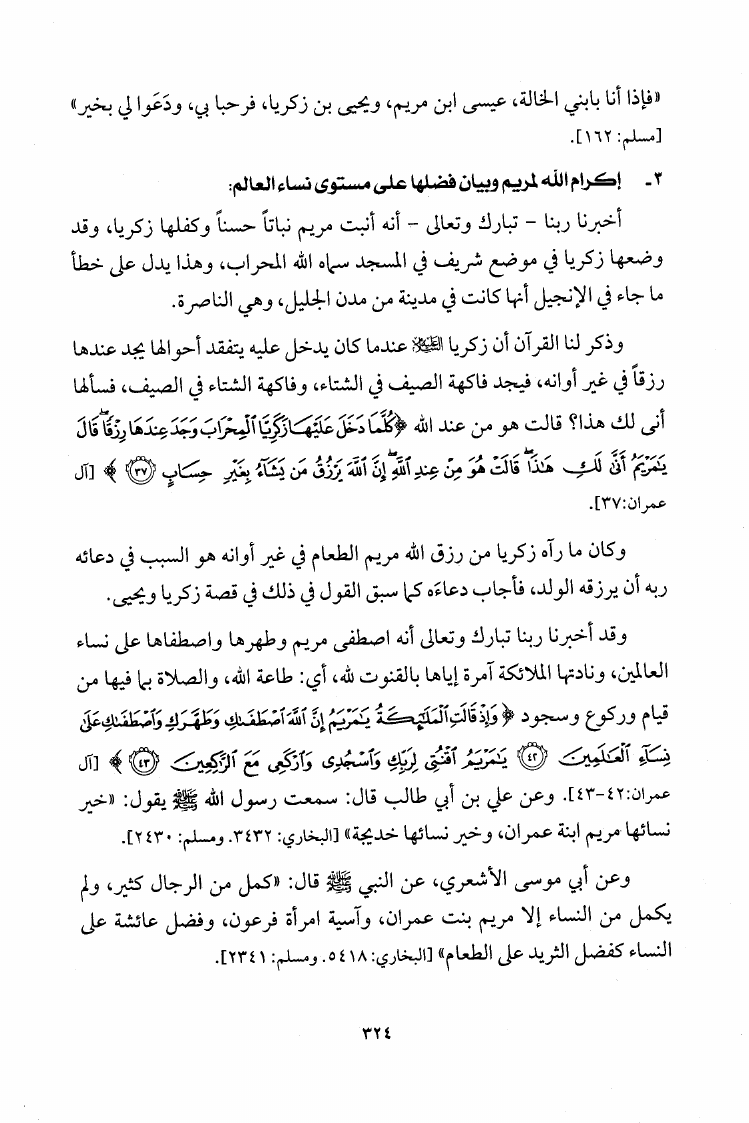 «فإذا أنا بابني الخالة، عيسى ابن مريم، ويحيى بن زكريا، فرحبا بي، ودَعَوا لي بخير»
[مسلم: ١٦٢].
٣- إكرام الله لمريم وبيان فضلها على مستوى نساء العالم:
أخبرنا ربنا – تبارك وتعالى – أنه أنبت مريم نباتاً حسناً وكفلها زكريا، وقد
وضعها زكريا في موضع شريف في المسجد سماه الله المحراب، وهذا يدل على خطأ
ما جاء في الإنجيل أنها كانت في مدينة من مدن الجليل، وهي الناصرة.
وذكر لنا القرآن أن زكريا عليه السلام عندما كان يدخل عليه يتفقد أحوالها يجد عندها
رزقاً في غير أوانه، فيجد فاكهة الصيف في الشتاء، وفاكهة الشتاء في الصيف، فسألها
أنى لك هذا؟ قالت هو من عند الله ﴿كُلَّمَا دَخَلَ عَلَيْهَا زَكَرِيَّا ٱلْمِحْرَابَ وَجَدَ عِندَهَا رِزْقًا ۖ قَالَ
يَٰمَرْيَمُ أَنَّىٰ لَكِ هَٰذَا ۖ قَالَتْ هُوَ مِنْ عِندِ ٱللَّهِ ۖ إِنَّ ٱللَّهَ يَرْزُقُ مَن يَشَآءُ بِغَيْرِ حِسَابٍ ﴿٣٧﴾ ﴾ [آل
عمران:٣٧].
وكان ما رآه زكريا من رزق الله مريم الطعام في غير أوانه هو السبب في دعائه
ربه أن يرزقه الولد، فأجاب دعاءَه كما سبق القول في ذلك في قصة زكريا ويحيى.
وقد أخبرنا ربنا تبارك وتعالى أنه اصطفى مريم وطهرها واصطفاها على نساء
العالمين، ونادتها الملائكة آمرة إياها بالقنوت لله، أي: طاعة الله، والصلاة بما فيها من
قيام وركوع وسجود ﴿وَإِذْ قَالَتِ ٱلْمَلَٰٓئِكَةُ يَٰمَرْيَمُ إِنَّ ٱللَّهَ ٱصْطَفَىٰكِ وَطَهَّرَكِ وَٱصْطَفَىٰكِ عَلَىٰ
نِسَآءِ ٱلْعَٰلَمِينَ ﴿٤٢﴾ يَٰمَرْيَمُ ٱقْنُتِى لِرَبِّكِ وَٱسْجُدِى وَٱرْكَعِى مَعَ ٱلرَّٰكِعِينَ ﴿٤٣﴾ ﴾ [آل
عمران:٤٢-٤٣]. وعن علي بن أبي طالب قال: سمعت رسول الله ﷺ يقول: «خير
نسائها مريم ابنة عمران، وخير نسائها خديجة» [البخاري: ٣٤٣٢. ومسلم: ٢٤٣٠].
وعن أبي موسى الأشعري، عن النبي ﷺ قال: «كمل من الرجال كثير، ولم
يكمل من النساء إلا مريم بنت عمران، وآسية امرأة فرعون، وفضل عائشة على
النساء كفضل الثريد على الطعام» [البخاري: ٥٤١٨. ومسلم: ٢٣٤١].
٣٢٤